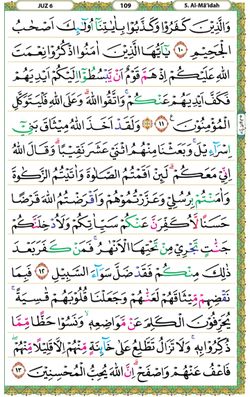 JUZ 6 109 S. Al-Mā'idah
وَالَّذِيْنَ كَفَرُوْا وَكَذَّبُوْا بِاٰيٰتِنَآ اُولٰٓئِكَ اَصْحٰبُ
الْجَحِيْمِ ۝١٠ يٰٓاَيُّهَا الَّذِيْنَ اٰمَنُوا اذْكُرُوْا نِعْمَتَ
اللّٰهِ عَلَيْكُمْ اِذْ هَمَّ قَوْمٌ اَنْ يَّبْسُطُوْٓا اِلَيْكُمْ اَيْدِيَهُمْ
فَكَفَّ اَيْدِيَهُمْ عَنْكُمْ ۚ وَاتَّقُوا اللّٰهَ ؕ وَعَلَى اللّٰهِ فَلْيَتَوَكَّلِ
الْمُؤْمِنُوْنَ ۝١١ وَلَقَدْ اَخَذَ اللّٰهُ مِيْثَاقَ بَنِيْٓ
اِسْرَآءِيْلَ ۚ وَبَعَثْنَا مِنْهُمُ اثْنَيْ عَشَرَ نَقِيْبًا ؕ وَقَالَ اللّٰهُ
اِنِّيْ مَعَكُمْ ؕ لَئِنْ اَقَمْتُمُ الصَّلٰوةَ وَاٰتَيْتُمُ الزَّكٰوةَ
وَاٰمَنْتُمْ بِرُسُلِيْ وَعَزَّرْتُمُوْهُمْ وَاَقْرَضْتُمُ اللّٰهَ قَرْضًا
حَسَنًا لَّاُكَفِّرَنَّ عَنْكُمْ سَيِّاٰتِكُمْ وَلَاُدْخِلَنَّكُمْ
جَنّٰتٍ تَجْرِيْ مِنْ تَحْتِهَا الْاَنْهٰرُ ۚ فَمَنْ كَفَرَ بَعْدَ
ذٰلِكَ مِنْكُمْ فَقَدْ ضَلَّ سَوَآءَ السَّبِيْلِ ۝١٢ فَبِمَا
نَقْضِهِمْ مِّيْثَاقَهُمْ لَعَنّٰهُمْ وَجَعَلْنَا قُلُوْبَهُمْ قٰسِيَةً ۚ
يُحَرِّفُوْنَ الْكَلِمَ عَنْ مَّوَاضِعِهٖ ۙ وَنَسُوْا حَظًّا مِّمَّا
ذُكِّرُوْا بِهٖ ۚ وَلَا تَزَالُ تَطَّلِعُ عَلٰى خَآئِنَةٍ مِّنْهُمْ اِلَّا قَلِيْلًا مِّنْهُمْ
فَاعْفُ عَنْهُمْ وَاصْفَحْ ؕ اِنَّ اللّٰهَ يُحِبُّ الْمُحْسِنِيْنَ ۝١٣